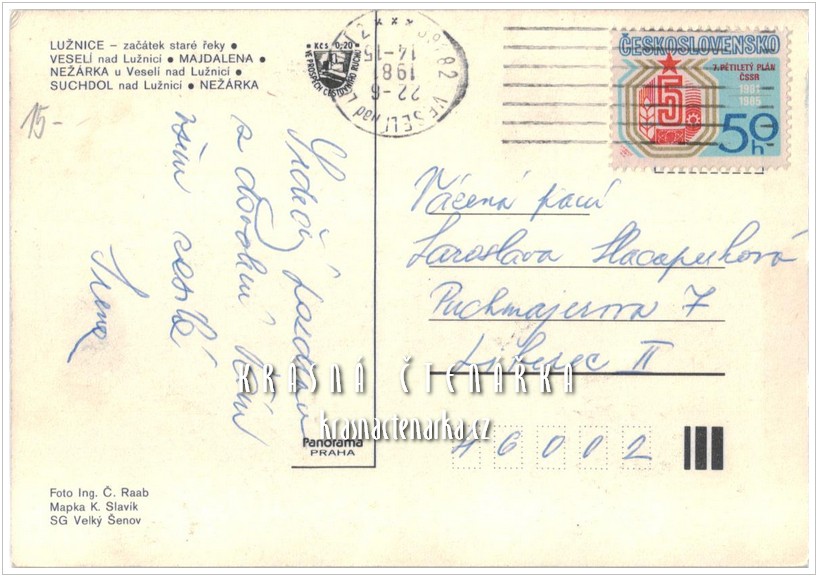 LUŽNICE – začátek staré řeky •
VESELÍ nad Lužnicí • MAJDALENA •
NEŽÁRKA u Veselí nad Lužnicí •
SUCHDOL nad Lužnicí • NEŽÁRKA
15-
Kčs 0,20
VE PROSPĚCH
391 82 VESELÍ nad
22.-6
1981
14-15
ČESKOSLOVENSKO
7. PĚTILETÝ PLÁN
ČSSR
1981
1985
5
50h
Srdečný pozdrav
z dovolené
Vám
Irena
Vážená paní
Jaroslava
Puchmajerova 7
Liberec II
46002
KRÁSNÁ ČTENÁŘKA
krasnactenarka.cz
Panorama
PRAHA
Foto Ing. Č. Raab
Mapka K. Slavík
SG Velký Šenov